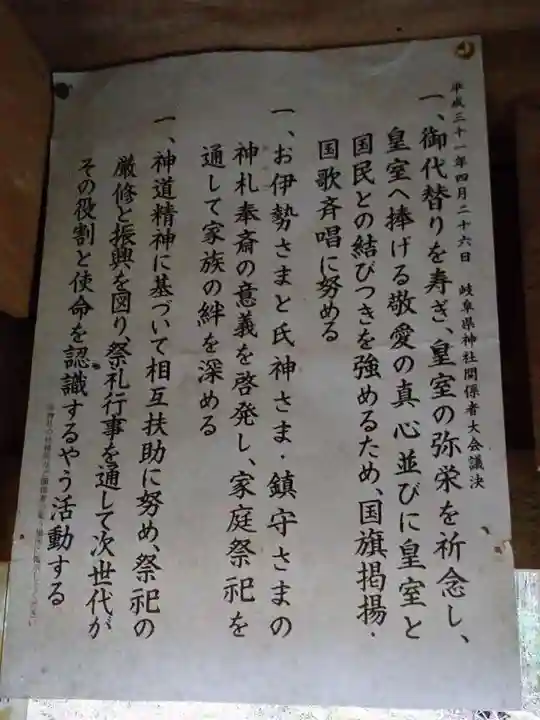 平成三十一年四月二十六日　岐阜県神社関係者大会議決
一、御代替りを寿ぎ、皇室の弥栄を祈念し、
皇室へ捧げる敬愛の真心並びに皇室と
国民との結びつきを強めるため、国旗掲揚・
国歌斉唱に努める
一、お伊勢さまと氏神さま・鎮守さまの
神札奉斎の意義を啓発し、家庭祭祀を
通して家族の絆を深める
一、神道精神に基づいて相互扶助に努め、祭祀の
厳修と振興を図り、祭礼行事を通して次世代が
その役割と使命を認識するやう活動する